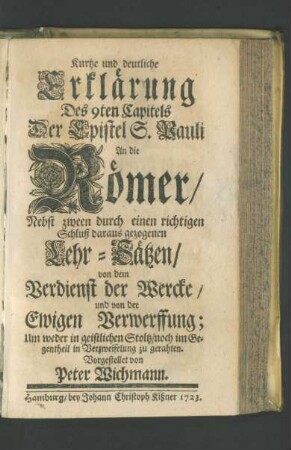 Kurtze und deutliche
Erklärung
Des 9ten Capitels
Der Epistel S. Pauli
An die
Römer/
Nebst zween durch einen richtigen
Schluß daraus gezogenen
Lehr-Sätzen/
von dem
Verdienst der Wercke/
und von der
Ewigen Verwerffung;
Um weder in geistlichen Stoltz/noch im Ge-
gentheil in Verzweifelung zu gerahten.
Vorgestellet von
Peter Wichmann.
Hamburg/ bey Johann Christoph Kißner 1723.